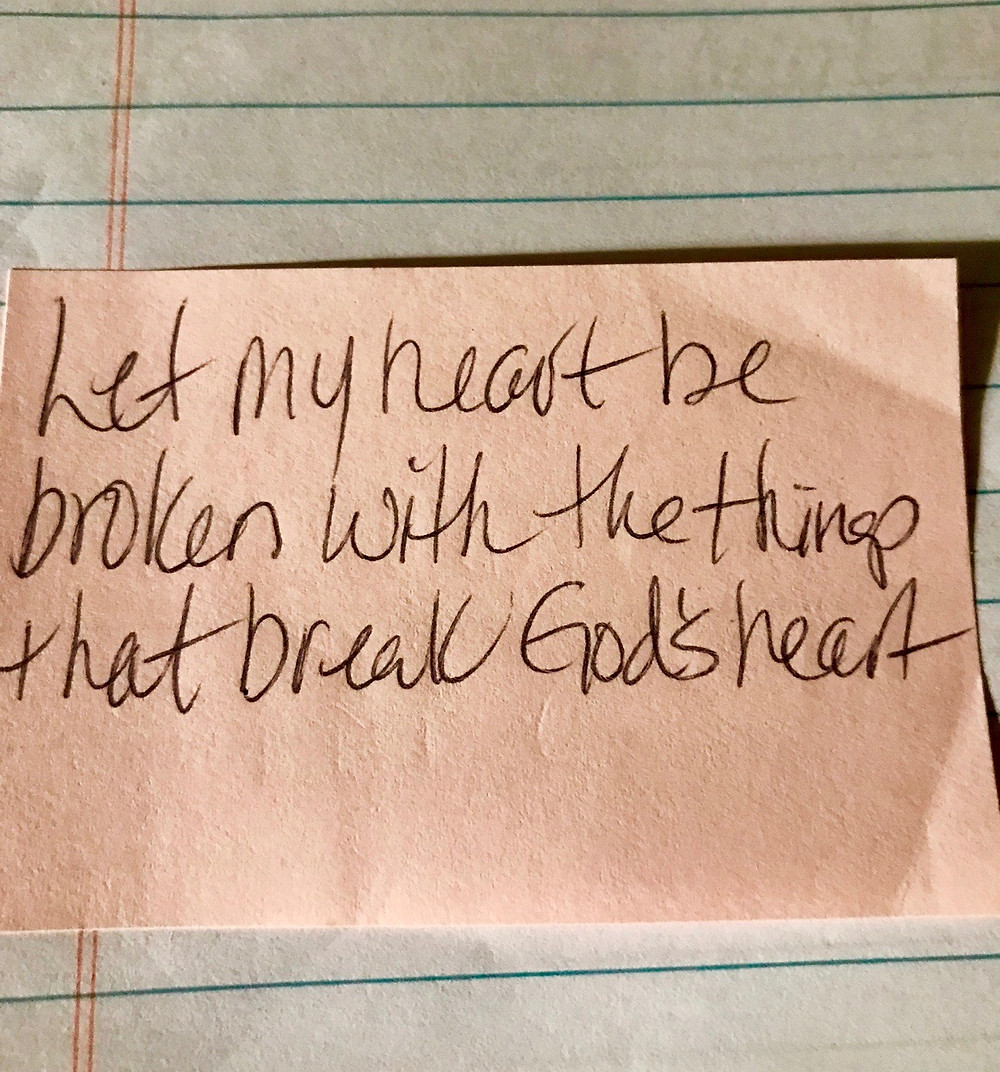 Let my heart be
broken with the things
that break God's heart